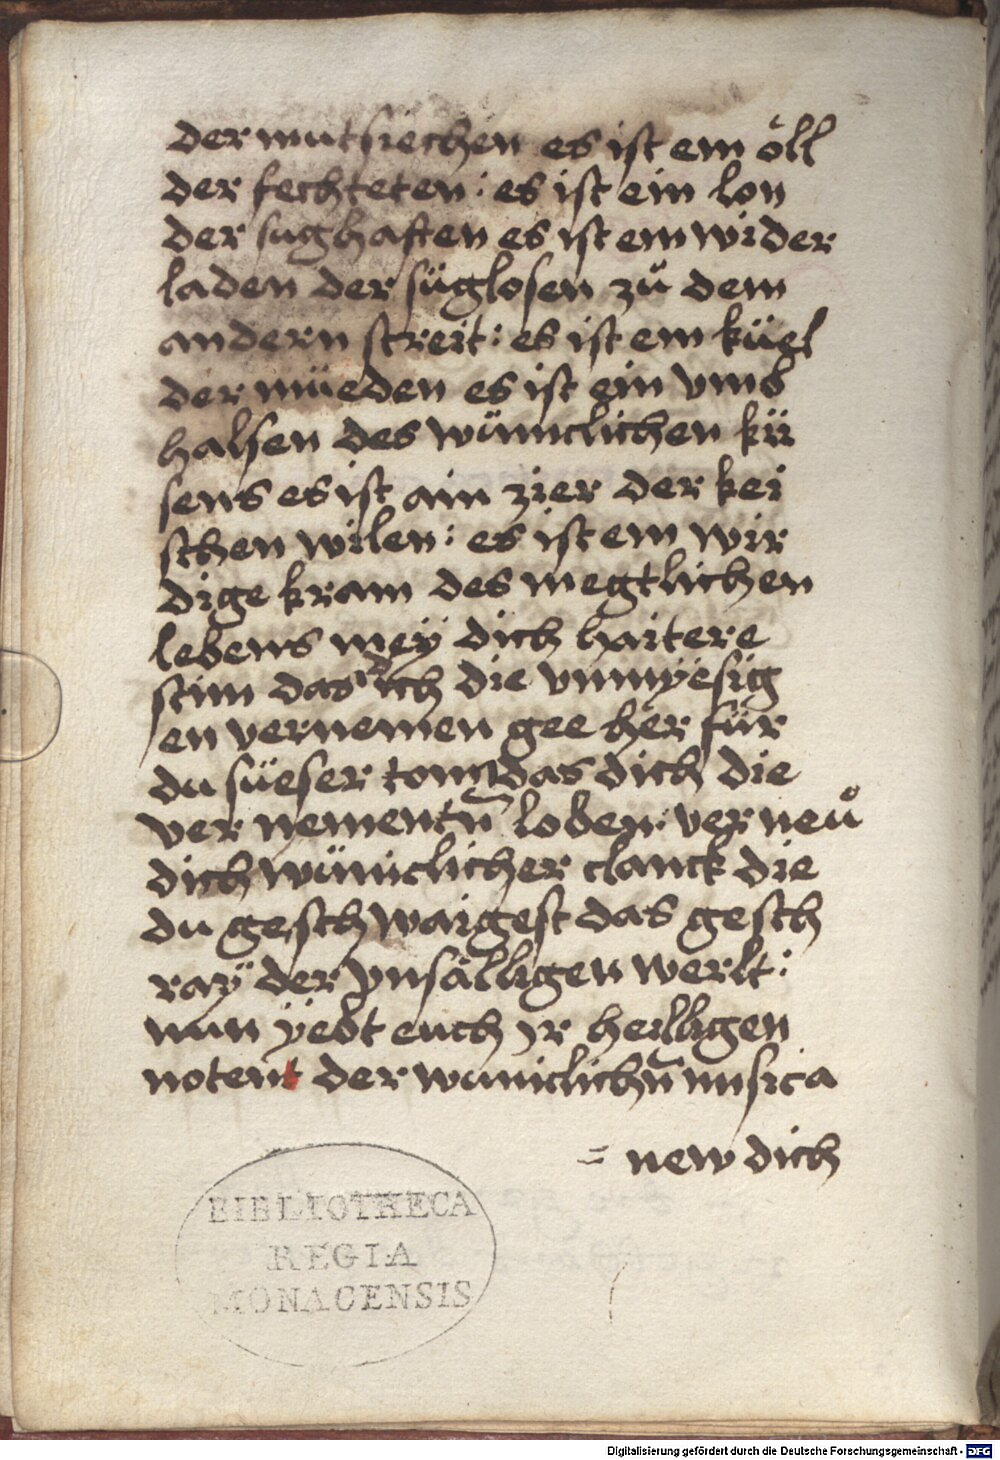 der mutsiechen es ist ein öll
der fechteten : es ist ein lon
der sughaften es ist ein wider
laden der süglosen zů dem
andern streit : es ist ein küel
der müeden es ist ein vmb
halsen des wünniclichen kü
sens es ist ain zier der kei
schen wilen : es ist ein wir
dige kram des megtlichen
lebens mey dich haitere
stim das dich die vnmÿesig
en vernemen gee her für
du süeser ton das dich die
ver nementn̄ loben · ver neů
dich wüniclicher clanck die
du geschwaigest das gesch
raÿ der vnsälligen werlt :
nun ÿebt euch ir heilligen
notent der wuniclichn̄ musica
= new dich
BIBLIOTHECA
REGIA
MONACENSIS
Digitalisierung gefördert durch die Deutsche Forschungsgemeinschaft - DFG